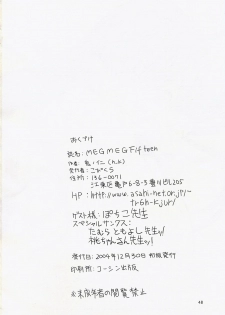 おくづけ
誌名: MEGMEGF/4teen
発行者: こかげくらぶ
住所: 136-0071
江東区亀戸6-8-3香川ビル205
HP: http://www.asahi-net.or.jp/
tr6h-kjur/
ゲスト様: ぽち子先生
スペシャルサンクス:
たむら ともよし先生ッ!
桃ちゃんさん先生ッ!
発行日: 2004年12月30日 初版発行
印刷所: コーシン出版
※未成年者の閲覧禁止
48